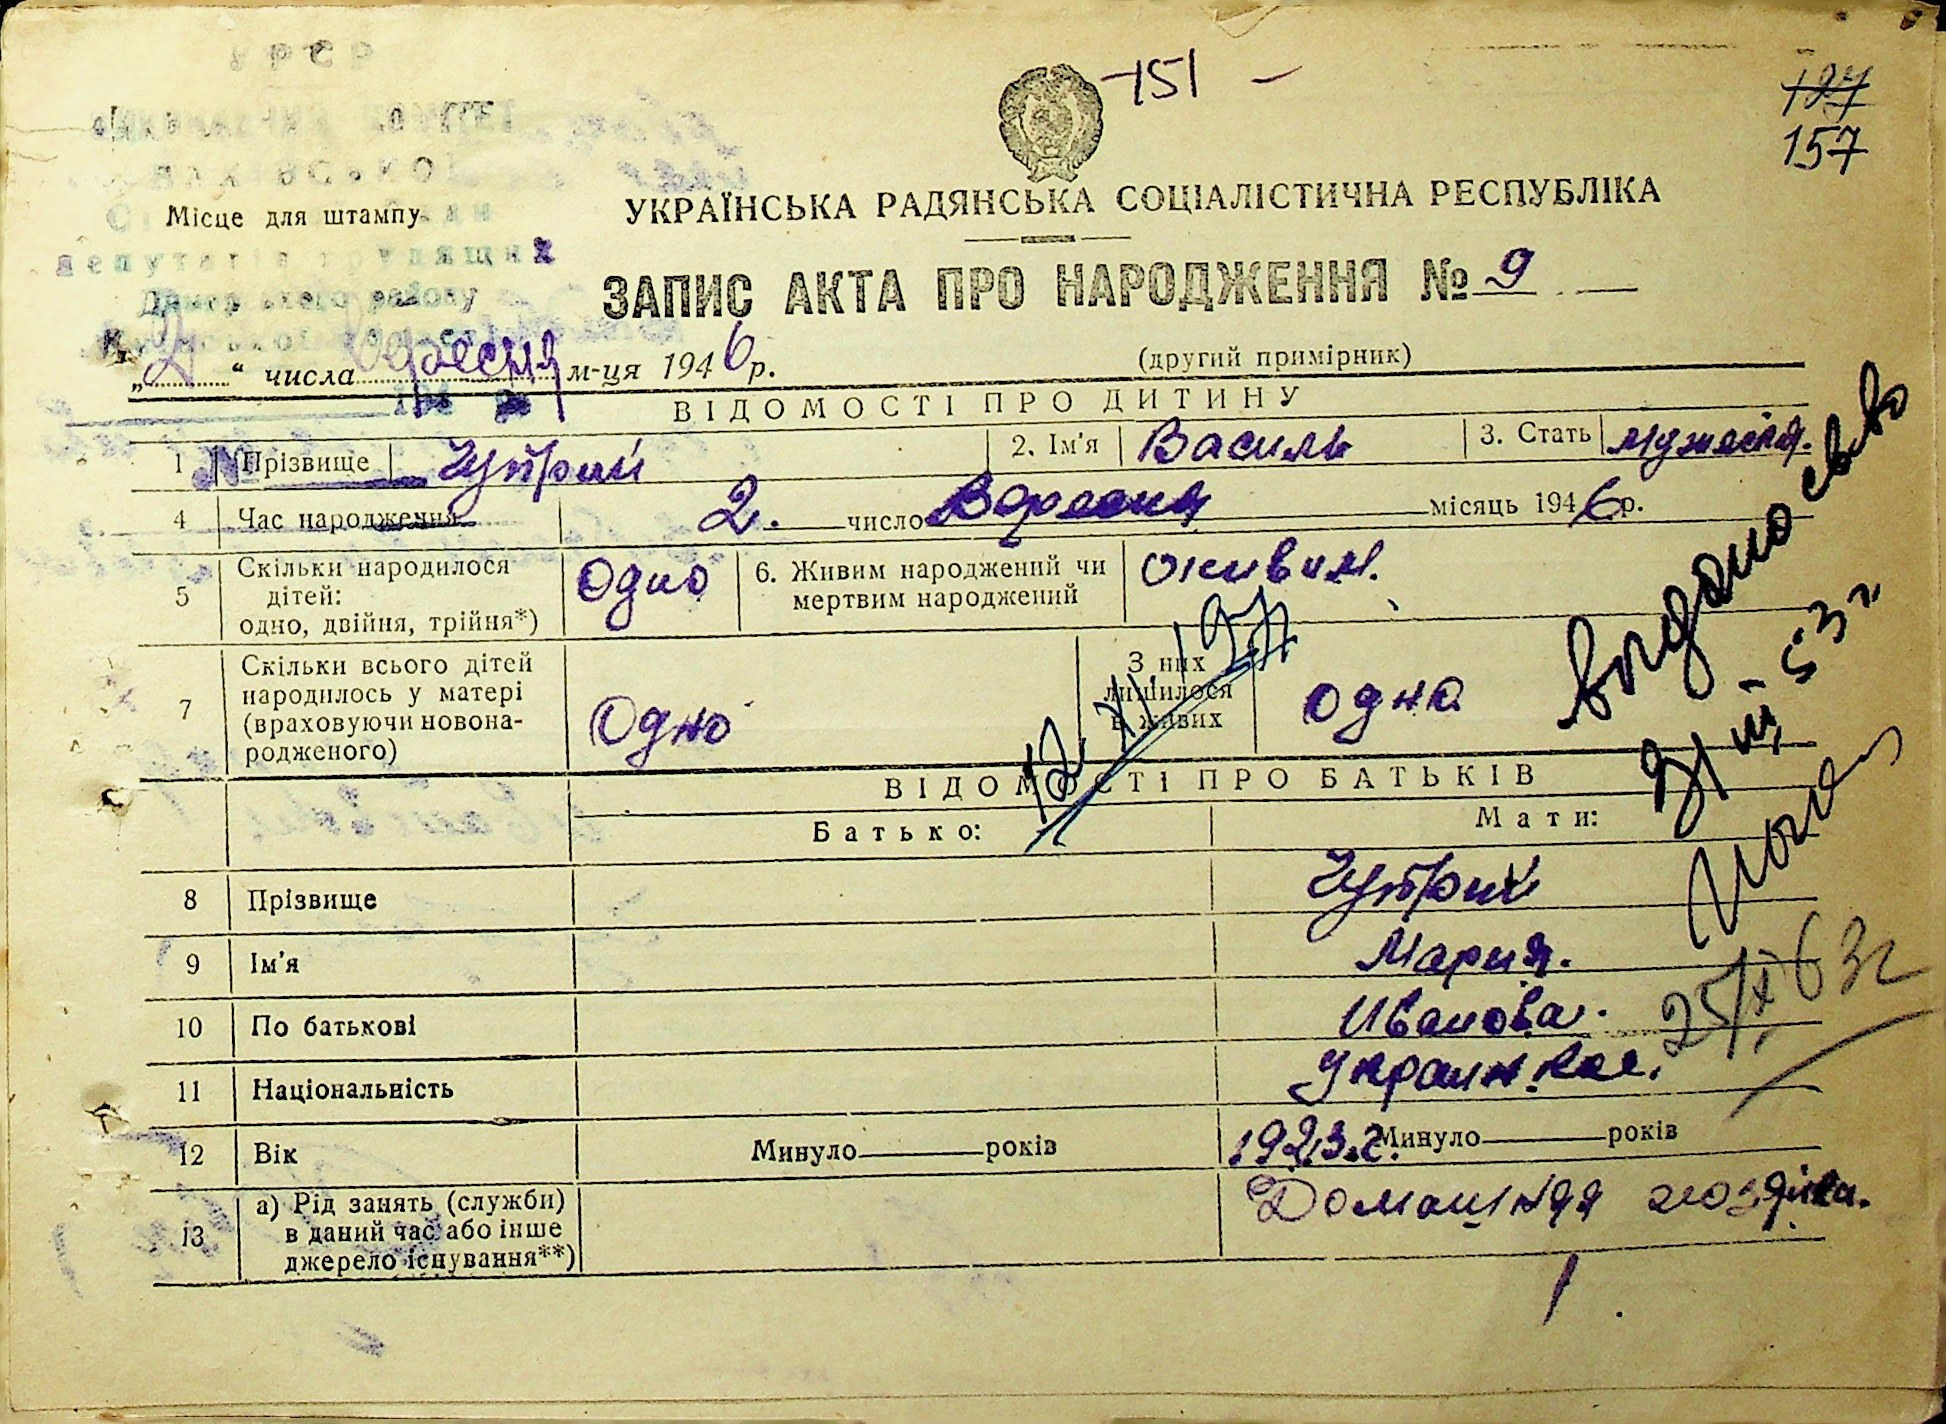 -151 -
127
157
УРСР
Місце для штампу
депутатів трудящих
району
УКРАЇНСЬКА РАДЯНСЬКА СОЦІАЛІСТИЧНА РЕСПУБЛІКА
ЗАПИС АКТА ПРО НАРОДЖЕННЯ № 9
„2“ числа Вересня м-ця 1946 р.
(другий примірник)
ВІДОМОСТІ ПРО ДИТИНУ
1 Прізвище Чуприй 2. Ім'я Василь 3. Стать
4 Час народження 2. число Вересня місяць 1946 р.
5 Скільки народилося дітей: одно, двійня, трійня*) Одно 6. Живим народжений чи мертвим народжений живим.
7 Скільки всього дітей народилось у матері (враховуючи новонародженого) Одно З них лишилося в живих одно
ВІДОМОСТІ ПРО БАТЬКІВ
Батько: Мати:
8 Прізвище Чуприй
9 Ім'я Мария.
10 По батькові Иванова.
11 Національність Украинка.
12 Вік Минуло років 1923.г. Минуло років
13 а) Рід занять (служби) в даний час або інше джерело існування**) Домашняя
видано св-во
31 III 53 г
25/XI 63г